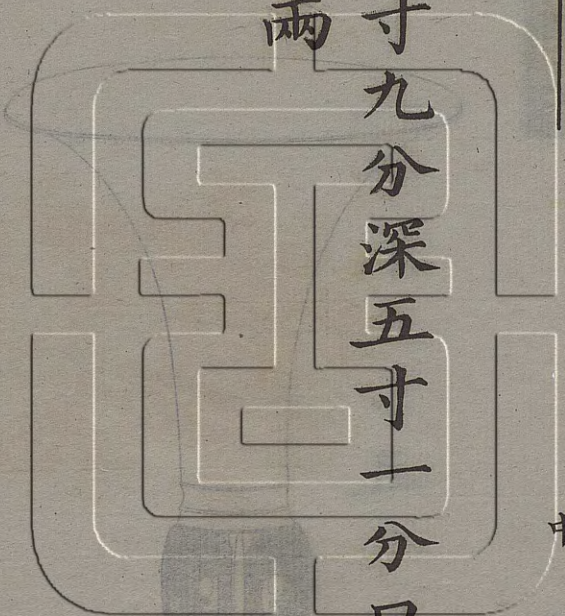 寸九分深五寸一分口
兩